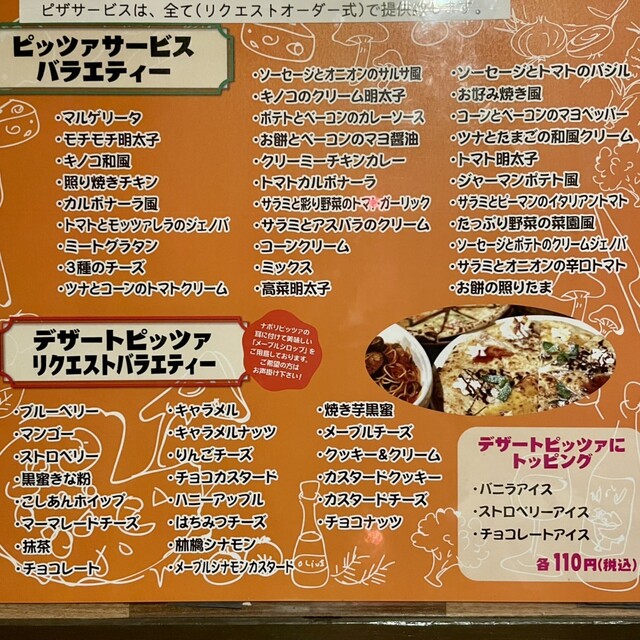 ピザサービスは、全て(リクエストオーダー式)で提供
ます。
ピッツァサービス
バラエティー
・マルゲリータ
・モチモチ明太子
・キノコ和風
・照り焼きチキン
・カルボナーラ風
・トマトとモッツァレラのジェノバ
・ミートグラタン
・3種のチーズ
・ツナとコーンのトマトクリーム
・ソーセージとオニオンのサルサ風
・キノコのクリーム明太子
・ポテトとベーコンのカレーソース
・お餅とベーコンのマヨ醤油
・クリーミーチキンカレー
・トマトカルボナーラ
・サラミと彩り野菜のトマトガーリック
・サラミとアスパラのクリーム
・コーンクリーム
・ミックス
・高菜明太子
・ソーセージとトマトのバジル
・お好み焼き風
・コーンとベーコンのマヨペッパー
・ツナとたまごの和風クリーム
・トマト明太子
・ジャーマンポテト風
・サラミとピーマンのイタリアントマト
・たっぷり野菜の菜園風
・ソーセージとポテトのクリームジェノバ
・サラミとオニオンの辛口トマト
・お餅の照りたま
デザートピッツァ
リクエストバラエティー
ナポリピッツァの
耳に付けて美味しい
「メープルシロップ」を
ご用意しております。
ご希望の方は
お声掛け下さい!
・ブルーベリー
・マンゴー
・ストロベリー
・黒蜜きな粉
・こしあんホイップ
・マーマレードチーズ
・抹茶
・チョコレート
・キャラメル
・キャラメルナッツ
・りんごチーズ
・チョコカスタード
・ハニーアップル
・はちみつチーズ
・林檎シナモン
・メープルシナモンカスタード
・焼き芋黒蜜
・メープルチーズ
・クッキー&クリーム
・カスタードクッキー
・カスタードチーズ
・チョコナッツ
デザートピッツァに
トッピング
・バニラアイス
・ストロベリーアイス
・チョコレートアイス
各110円(税込)
OLIVE